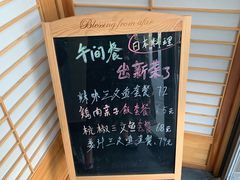 Blessing from afar
午间餐 日本料理
出新菜了
辣味三文鱼套餐 72
鸡肉亲子饭套餐 65元
杭椒三文鱼套餐 68元
姜汁三文鱼套餐 79元